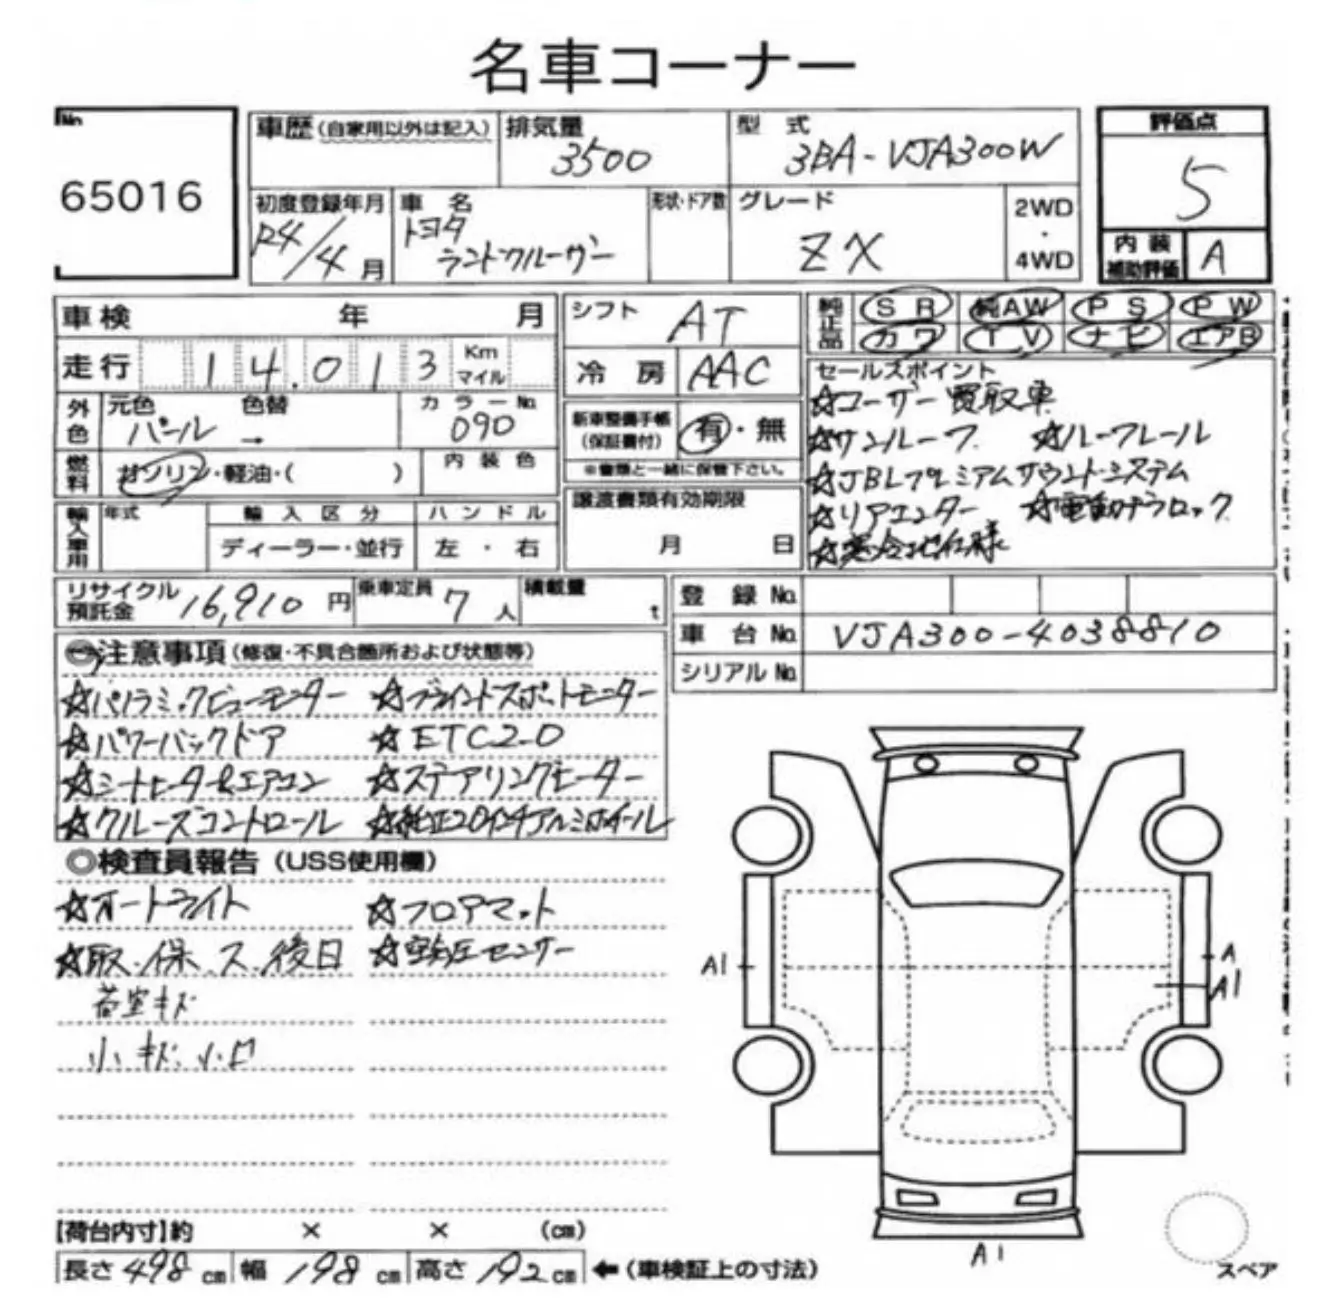 名車コーナー
No. 65016
車歴 (自家用以外は記入) 排気量 3500 型式 3BA-VJA300W 評価点 5
初度登録年月 R4/4月 車名 トヨタ ランドクルーザー 形状・ドア数 グレード ZX 2WD・4WD 内装補助評価 A
車検 年 月 シフト AT 純正品 SR 純AW PS PW
カワ TV ナビ エアB
走行 14.013 Km マイル 冷房 AAC セールスポイント
☆ユーザー買取車
外色 元色 パール 色替 → カラーNo. 090 新車整備手帳(保証書付) 有・無
※書類と一緒に保管下さい。
☆サンルーフ ☆ルーフレール
燃料 ガソリン・軽油・( ) 内装色
☆JBLプレミアムサウンドシステム
輸入車用 年式 輸入区分 ハンドル 譲渡書類有効期限
ディーラー・並行 左・右 月 日
☆リアエンター ☆電動デフロック
☆寒冷地仕様
リサイクル預託金 16,910円 乗車定員 7人 積載量 t 登録No.
車台No. VJA300-4038810
シリアルNo.
◎注意事項(修復・不具合箇所および状態等)
☆パノラミックビューモニター ☆ブラインドスポットモニター
☆パワーバックドア ☆ETC2.0
☆シートヒーター&エアコン ☆ステアリングヒーター
☆クルーズコントロール ☆純正20インチアルミホイール
◎検査員報告 (USS使用欄)
☆オートライト ☆フロアマット
☆取.保.ス.後日 ☆空気圧センサー
荷室キズ
小キズ.小凹
A1 A
A1
A1
【荷台内寸】約 × × (cm)
長さ 498 cm 幅 198 cm 高さ 192 cm ←(車検証上の寸法)
スペア